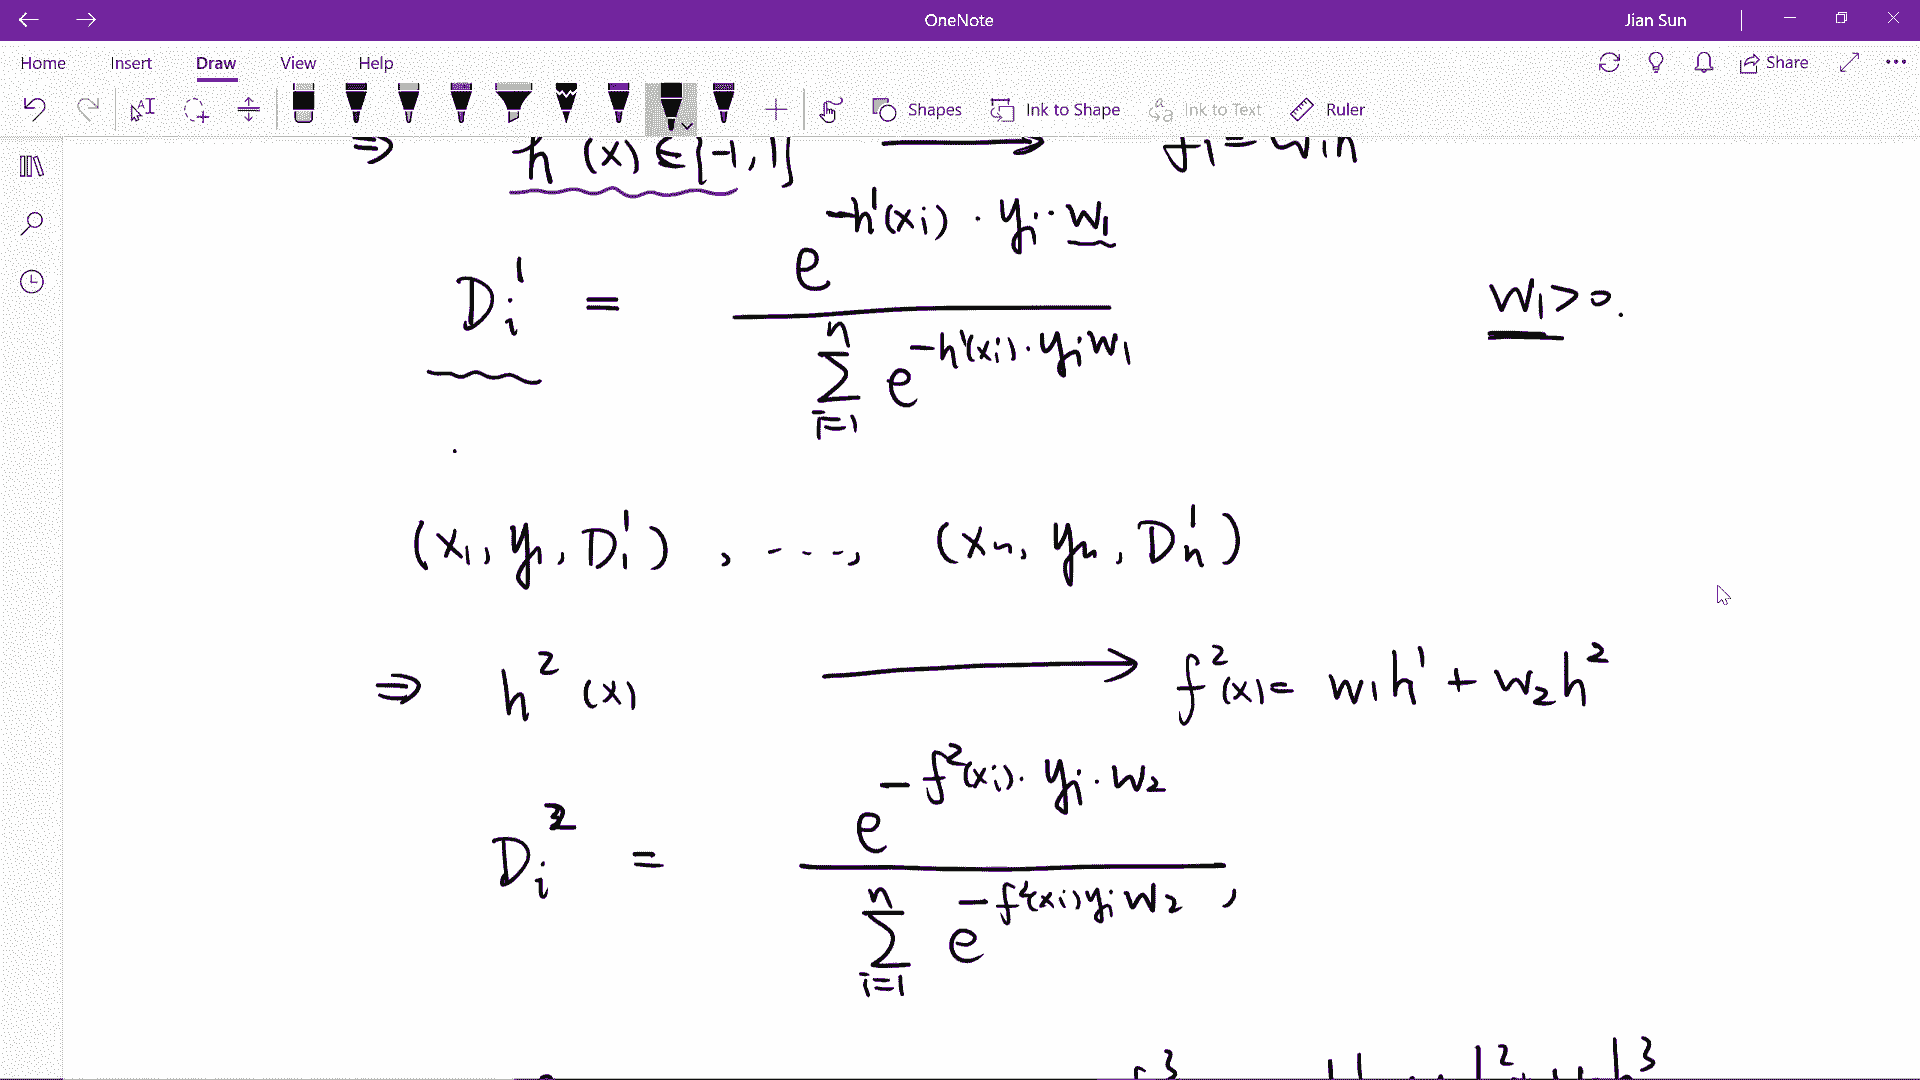 OneNote
Jian Sun
Home Insert Draw View Help
Share
Shapes Ink to Shape Ink to Text Ruler
⇒ h (x) ∈ [-1, 1] ⟶ f1 = w1h
D_i^1 = e^{-h^1(x_i) · y_i · w_1} / ∑_{i=1}^{n} e^{-h^1(x_i) · y_i w_1} w_1 > 0.
(x_1, y_1, D_1^1) , - - - -, (x_n, y_n, D_n^1)
⇒ h^2 (x) ⟶ f^2(x) = w_1h^1 + w_2h^2
D_i^2 = e^{-f^2(x_i) · y_i · w_2} / ∑_{i=1}^{n} e^{-f^2(x_i) y_i w_2} ,